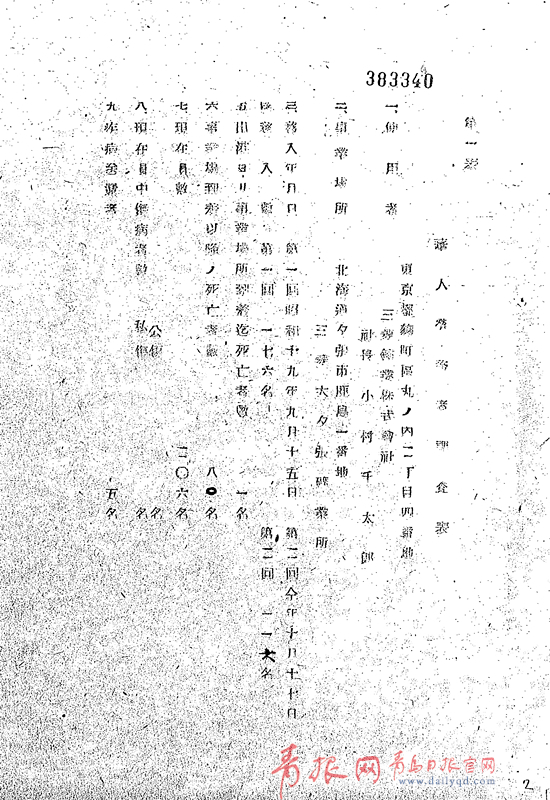 383340
第一表
華人労務者調査表
一、使用者 東京都麹町区丸ノ内二丁目四番地
三菱鉱業株式会社
社長 小村千太郎
二、事業場所 北海道夕張市鹿島一番地
三菱大夕張礦業所
三、移入年月日 第一回昭和十九年九月十五日 第二回仝年十月十七日
移入数 第一回 一七六名 第二回 一一六名
五、出港ヨリ事業場所到着迄死亡者数 一名
六、事業場到着以降ノ死亡者数 八〇名
七、現在員数 二〇六名
八、現在員中傷病者数 公傷 名
私傷 名
九、疾病 者 五名
青报网 青岛日报官网
www.dailyqd.com
2